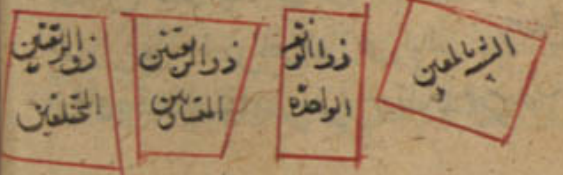 الشبيه بالمعين
ذو الزنقة
الواحدة
ذو الزنقتين
المتساويتين
ذو الزنقتين
المختلفتين